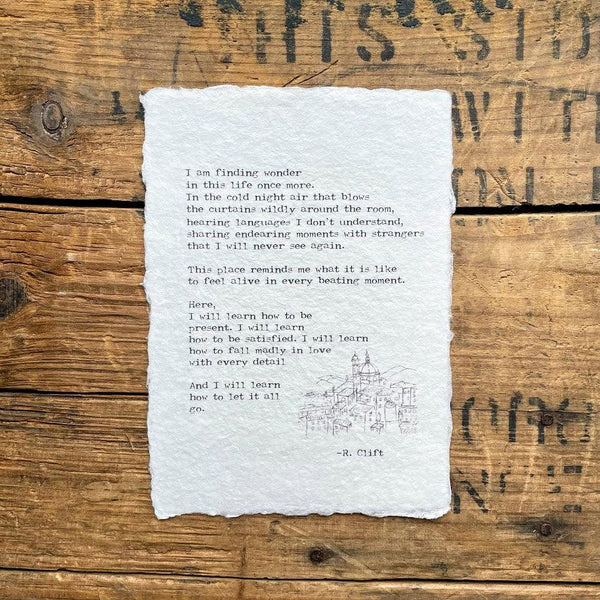 THIS SID
WITH
I am finding wonder
in this life once more.
In the cold night air that blows
the curtains wildly around the room,
hearing languages I don't understand,
sharing endearing moments with strangers
that I will never see again.
This place reminds me what it is like
to feel alive in every beating moment.
Here,
I will learn how to be
present. I will learn
how to be satisfied. I will learn
how to fall madly in love
with every detail
And I will learn
how to let it all
go.
-R. Clift